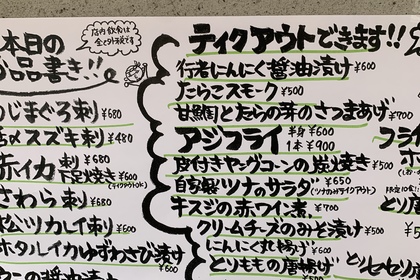 本日の
お品書き!!
店内飲食は
全て外税です
めじまぐろ刺 ¥680
活〆スズキ刺 ¥480
赤イカ 刺 ¥680
下足焼き ¥600
(テイクアウトOK)
さわら刺 ¥680
松ツカレイ刺 ¥600
ホタルイカゆずわさび漬け ¥600
の醤油漬け
テイクアウトできます!!
行者にんにく醤油漬け ¥600
たらこスモーク ¥500
甘鯛とたらの芽のさつまあげ ¥700
アジフライ 半身 ¥600
1本 ¥900
皮付きヤングコーンの炭焼き ¥500
自家製ツナのサラダ ¥650
(ツナのみテイクアウト)
牛スジの赤ワイン煮 ¥700
クリームチーズのみそ漬け ¥500
にんにく丸揚げ ¥600
とりももの唐揚げ
フラ
とり